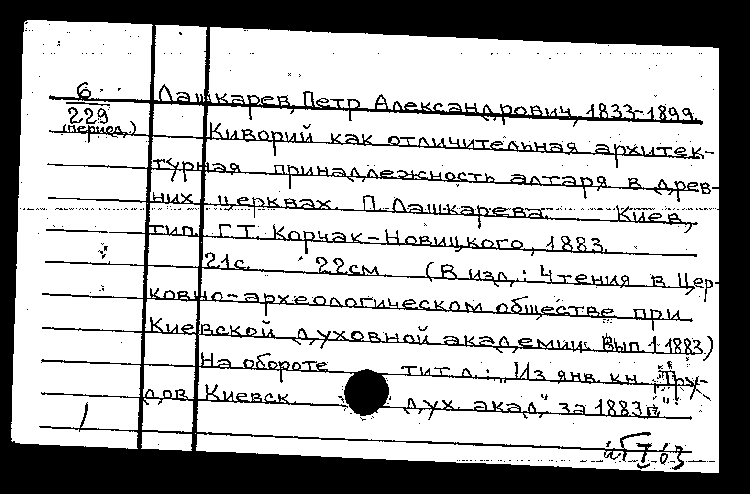 6
229
(период.)
Лашкарев, Петр Александрович, 1833-1899.
Киворий как отличительная архитек-
турная принадлежность алтаря в древ-
них церквах. П. Лашкарева. Киев,
тип. Г.Т. Корчак-Новицкого, 1883.
21с. 22см (В изд.: Чтения в Цер-
ковно-археологическом обществе при
Киевской духовной академии. Вып 1 1883)
На обороте тит.л.: „Из янв. кн. "Тру-
дов Киевск. дух. акад." за 1883г."